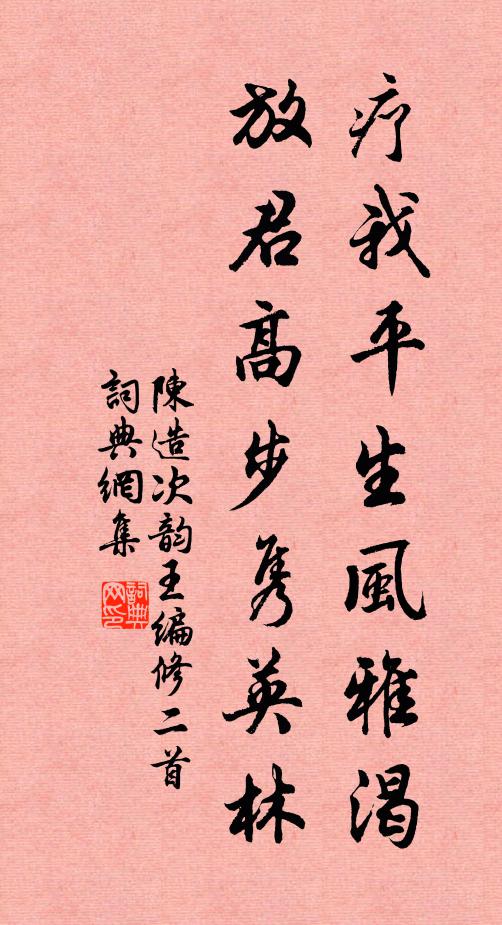 疗我平生風雅渴
放君高步隽英林
陳造次韵王编修二首
詞典網集
詞典网印